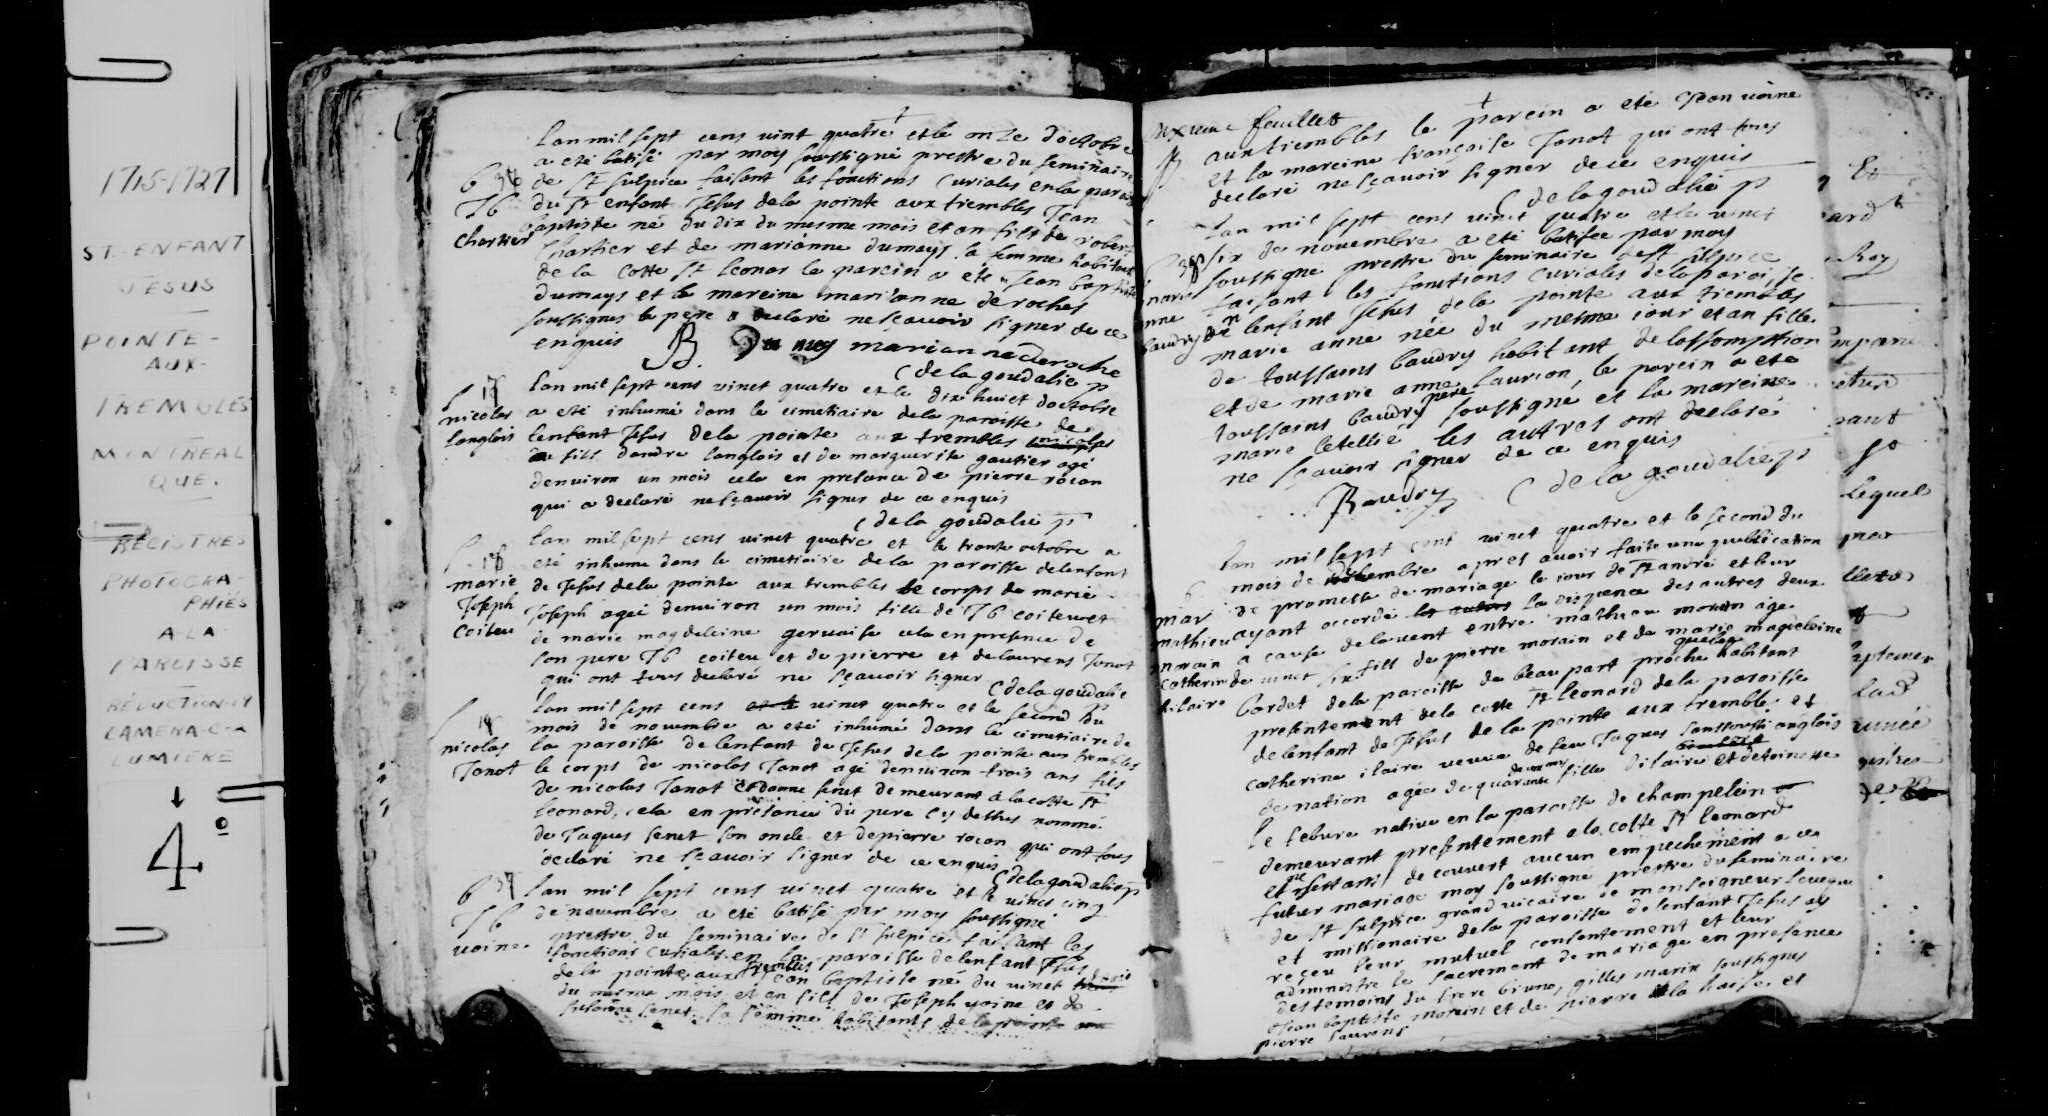 1715-1727
ST-ENFANT
JESUS
POINTE-
AUX-
TREMBLES
MONTREAL
QUE.
REGISTRES
PHOTOGRA-
PHIÉS
A LA
PAROISSE
RÉDUCTION-14
CAMERA-C-2
LUMIÈRE
4º
Lan mil sept cens vint quatre et le onze doctobre
a eté batisé par moy soussigné prestre du seminaire
b 36 de St sulpice faisant les fonctions curiales en la
Jb du St enfant Jesus de la pointe aux trembles Jean
chartier baptiste né du dix du mesme mois et an fils de rober
chartier et de marianne dumays sa femme habitant
de la coste St leonar le parein a eté Jean baptiste
dumays et la mareine marianne deroches
soussignes le pere a declaré ne sçavoir signer de ce
enquis JB. Dumay marianne deroche
C de la goudalie p
S 17 Lan mil sept cens vinct quatre et le dix huict doctobre
nicolas a eté inhumé dans le cimetiaire de la paroisse de
langlois lenfant Jesus de la pointe aux trembles nicolas
fils dandre langlois et de marguerite gautier agé
denviron un mois cela en presance de pierre rocan
qui a declaré ne sçavoir signer de ce enquis
C de la goudalie p
Lan mil sept cens vinct quatre et le trante octobre a
S. 18 eté inhume dans le cimetiaire de la paroisse de lenfant
marie de Jesus de la pointe aux trembles le corps de marie
Joseph Joseph ageé denviron un mois fille de Jb coiteu et
Coiteu de marie magdeleine gervaise cela en presence de
son pere Jb coiteu et de pierre et de laurens Janot
qui ont tous declaré ne sçavoir signer
C de la goudalie p
Lan mil sept cens et le vinct quatre et le second du
S 19 mois de novembre a eté inhumé dans le cimetiaire de
nicolas la paroisse de lenfant de Jesus de la pointe aux trembles
Janot le corps de nicolas Janot agé denviron trois ans fils
de nicolas Janot et danne senet demeurant à la coste St
leonard, cela en présence du pere cy dessus nommé
de Jaques senet son oncle et de pierre rocan qui ont tous
declaré ne sçavoir signer de ce enquis
C de la goudalie p
b 37 Lan mil sept cens vinct quatre et le vinct cinq
Jb de novembre a eté batisé par moy soussigné
voine prestre du seminaire de St sulpice faisant les
fonctions curiales en la paroisse de lenfant Jesus
de la pointe aux trembles Jean baptiste né du vinct
du mesme mois et an fils de Joseph voine et de
susanne senet sa femme habitants de la paroisse
feuillet
aux trembles le parein a eté Jean voine
et la mareine françoise Janot qui ont tous
declaré ne sçavoir signer de ce enquis
C de la goudalie p
Lan mil sept cens vinct quatre et le vinct
six de novembre a eté batisée par moy
38 soussigné prestre du seminaire de St sulpice
marie faisant les fonctions curiales de la paroisse
anne de lenfant Jesus de la pointe aux trembles
baudry marie anne née du mesme iour et an fille
de toussains baudry habitant de lassomption
et de marie anne laurion, le parein a eté
toussains baudry pere soussigné et la mareine
marie letellie les autres ont declaré
ne sçavoir signer de ce enquis
Baudry C de la goudalie p
Lan mil sept cent vinct quatre et le second du
mois de decembre apres avoir faite une publication
de promesse de mariage le iour de St andré et leur
mar ayant accordé les autres la dispence des autres deux
mathieu a cause de lavent entre mathieu morain âge
morain de vinct six fils de pierre morain et de marie magdeleine
Catherine Cordet de la paroisse de beauport proche quebec habitant
hilaire presentement de la coste St leonard de la paroisse
de lenfant de Jesus de la pointe aux trembles et
catherine ilaire veuve de feu Jaques anglois
de nation agée de quarante fille dilaire et detoinette
le febure native en la paroisse de champelein
demeurant presentement a la coste St leonard
et ne sestant decouvert aucun empechement a ce
futur mariage moy soussigné prestre du seminaire
de St sulpice grand vicaire de monseigneur levêque
et missionaire de la paroisse de lenfant Jesus ay
reçeu leur mutuel consentement et leur
administre le sacrement de mariage en presence
des temoins du frere bruno, gilles marin soussignes
Jean baptiste morain et de pierre de la haise et
pierre laurens
lequel